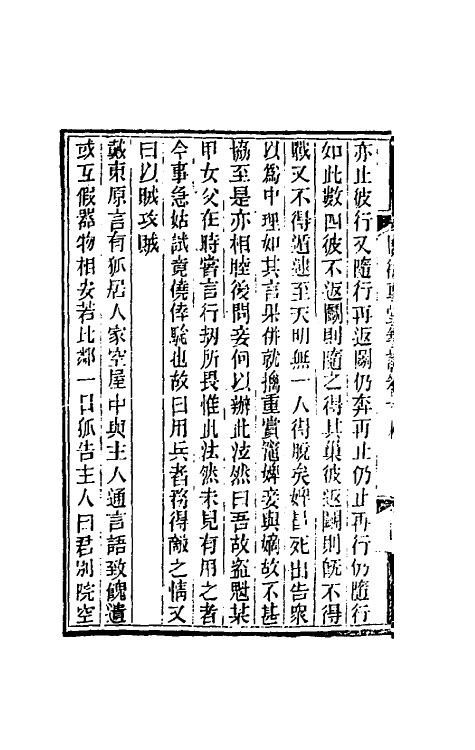 亦止彼行又隨行再返鬭仍奔再止仍止再行仍隨行
如此數四彼不返鬭則隨之得其巢彼返鬭則旣不得
戰又不得遁逮至天明無一人得脫矣婢冒死出告衆
以爲中理如其言果併就擒重賞寵婢妾與嫡故不甚
協至是亦相睦後問妾何以辦此泫然曰吾故盜魁某
甲女父在時嘗言行刼所畏惟此法然未見有用之者
今事急姑試竟僥倖驗也故曰用兵者務得敵之情又
曰以賊攻賊
戴東原言有狐居人家空屋中與主人通言語致餽遺
或互假器物相安若比鄰一日狐告主人曰君別院空